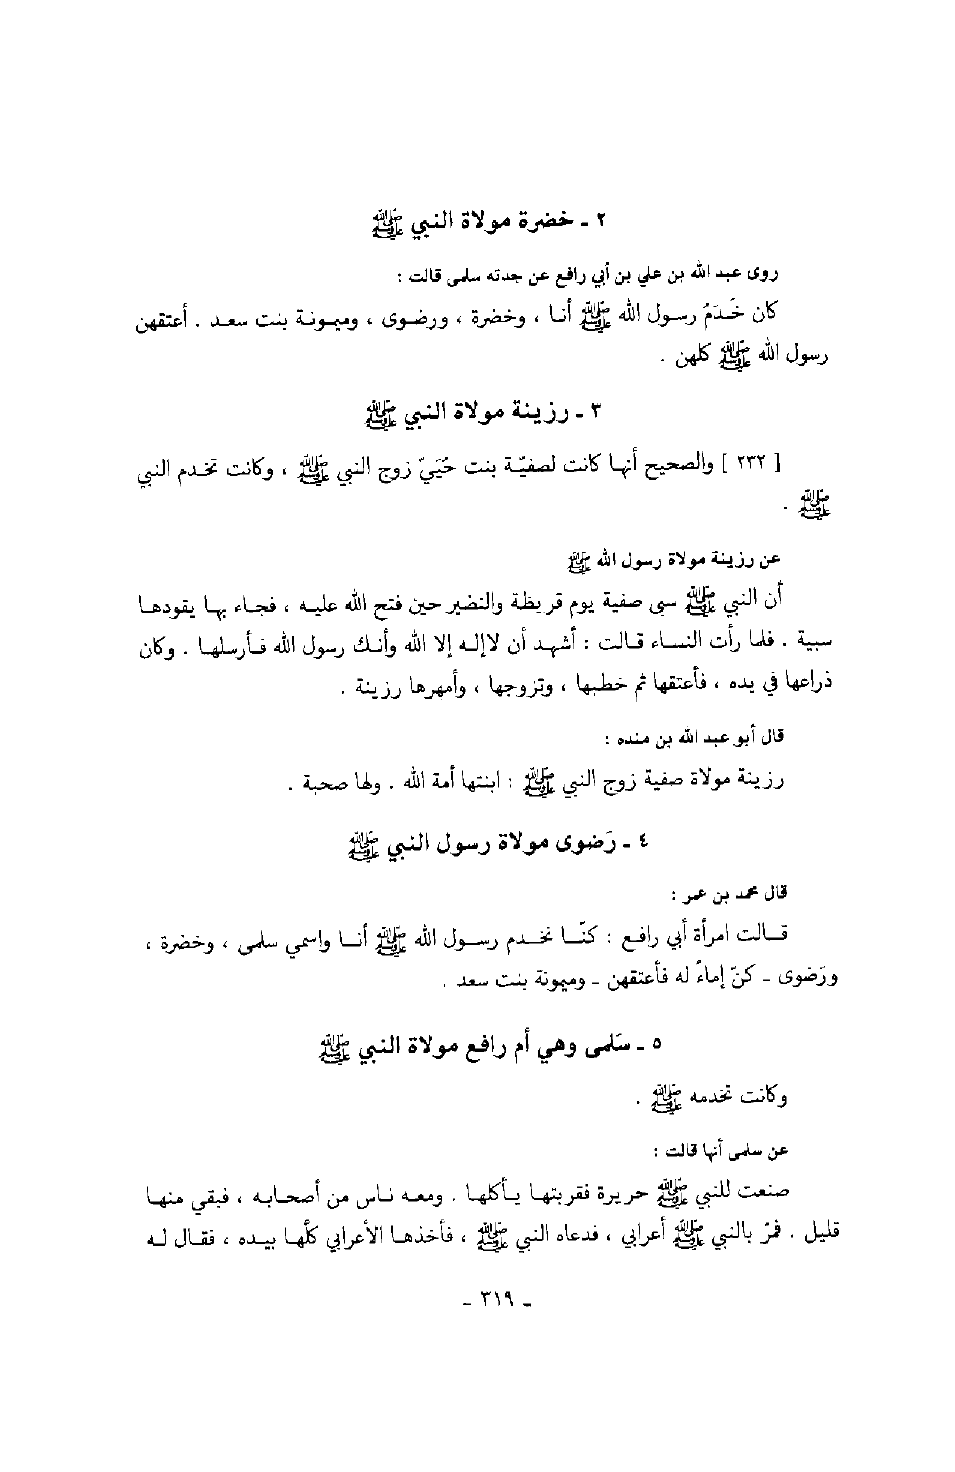 ٢ ـ خضرة مولاة النبي ﷺ
روى عبد الله بن علي بن أبي رافع عن جدته سلمى قالت :
كان خَدَمُ رسول الله ﷺ أنا ، وخضرة ، ورضوى ، وميمونة بنت سعد . أعتقهن
رسول الله ﷺ كلهن .
٣ ـ رزينة مولاة النبي ﷺ
[ ٢٣٢ ] والصحيح أنها كانت لصفيّة بنت حُيَيّ زوج النبي ﷺ ، وكانت تخدم النبي
ﷺ .
عن رزينة مولاة رسول الله ﷺ
أن النبي ﷺ سبى صفية يوم قريظة والنضير حين فتح الله عليه ، فجاء بها يقودها
سبية . فلما رأت النساء قالت : أشهد أن لاإله إلا الله وأنك رسول الله فأرسلها . وكان
ذراعها في يده ، فأعتقها ثم خطبها ، وتزوجها ، وأمهرها رزينة .
قال أبو عبد الله بن منده :
رزينة مولاة صفية زوج النبي ﷺ : ابنتها أمة الله . ولها صحبة .
٤ ـ رَضوى مولاة رسول النبي ﷺ
قال محمد بن عمر :
قالت امرأة أبي رافع : كنّا نخدم رسول الله ﷺ أنا واسمي سلمى ، وخضرة ،
ورَضوى ـ كنّ إماءً له فأعتقهن ـ وميمونة بنت سعد .
٥ ـ سَلمى وهي أم رافع مولاة النبي ﷺ
وكانت تخدمه ﷺ .
عن سلمى أنها قالت :
صنعت للنبي ﷺ حريرة فقربتها يأكلها . ومعه ناس من أصحابه ، فبقي منها
قليل . فمرّ بالنبي ﷺ أعرابي ، فدعاه النبي ﷺ ، فأخذها الأعرابي كلَّها بيده ، فقال له
ـ ٣١٩ ـ